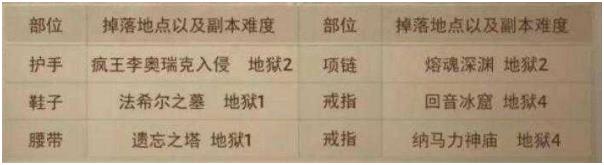 部位 掉落地点以及副本难度 部位 掉落地点以及副本难度
护手 疯王李奥瑞克入侵 地狱2 项链 熔魂深渊 地狱2
鞋子 法希尔之墓 地狱1 戒指 回音冰窟 地狱4
腰带 遗忘之塔 地狱1 戒指 纳马力神庙 地狱4